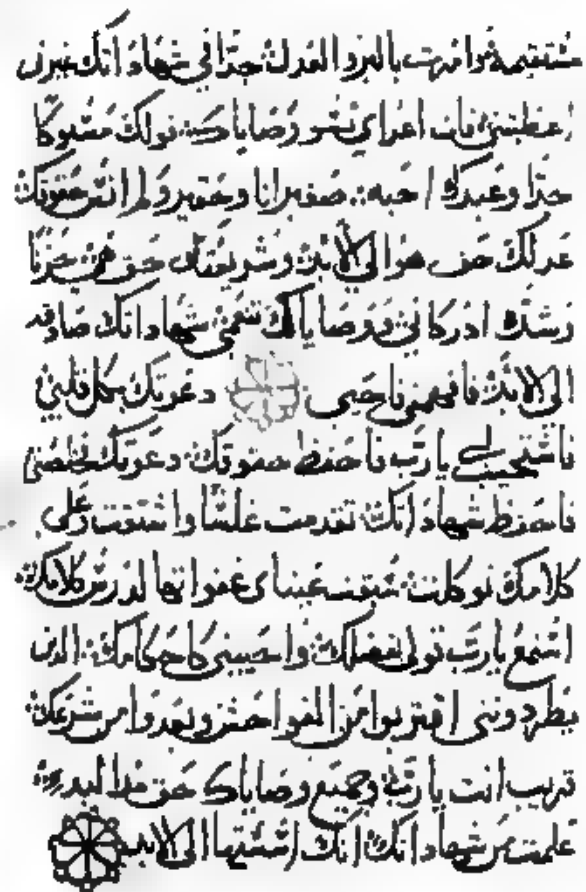 مستقيمة وامرت بالبر والعدل جدا في شهاداتك غيرتي
فان اعداي نسوا وصاياك قولك مسبوكا
جدا وعبدك احبه صغير انا وحقير ولم انس حقوقك
عدلك حق هو الى الابد وشريعتك حق هي حزنا
وشدة ادركاني ووصاياك نعمتي شهاداتك صادقه
الى الابد فافهمني فاحيى دعوتك بكل قلبي
فاستجيب لي يارب فاحفظ حقوقك دعوتك خلصني
فاحفظ شهاداتك تقدمت غلسا واستغثت وعلى
كلامك توكلت سبقت عيناي غدواتها لدرس كلامك
اسمع يارب قولي بفضلك واحييني كاحكامك الذين
يطردونني اقتربوا من الفواحش وبعدوا من شرعك
قريب انت يارب وجميع وصاياك حق منذ البدء
علمت من شهاداتك انك اسستها الى الابد